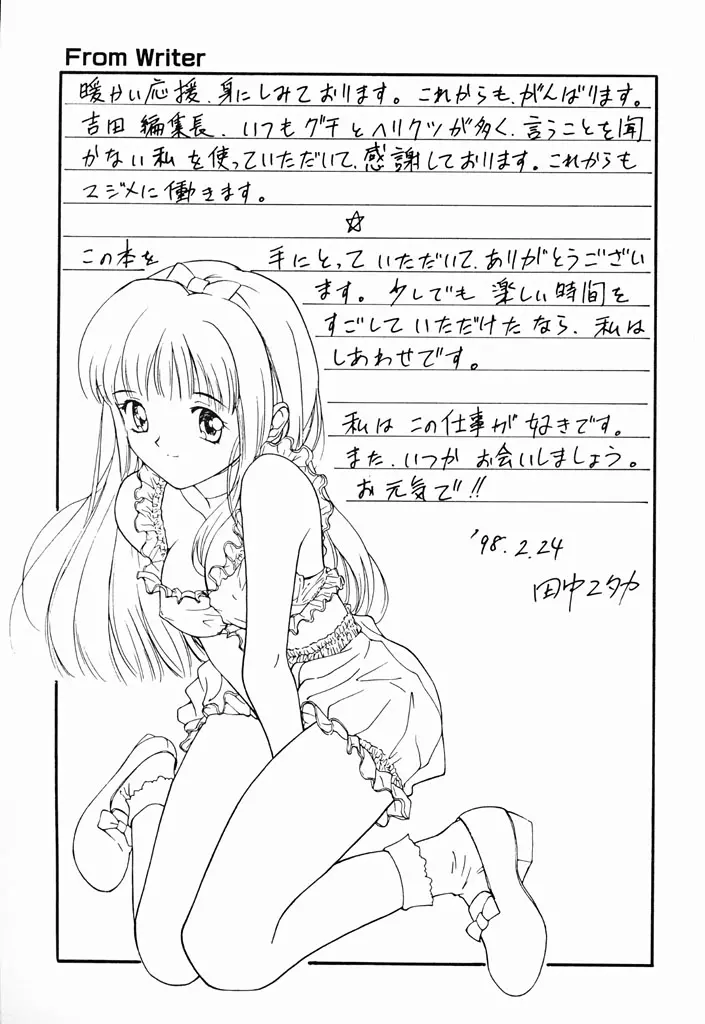 From Writer
暖かい応援、身にしみております。これからも、がんばります。
吉田 編集長、いつもグチとヘリクツが多く、言うことを聞
かない私を使っていただいて、感謝しております。これからも
マジメに働きます。
☆
この本を 手にとって いただいて、ありがとうござい
ます。少しでも 楽しい時間を
すごして いただけたなら、私は
しあわせです。
私は この仕事が 好きです。
また、いつか お会いしましょう。
お元気で!!
'98.2.24
田中ユタカ